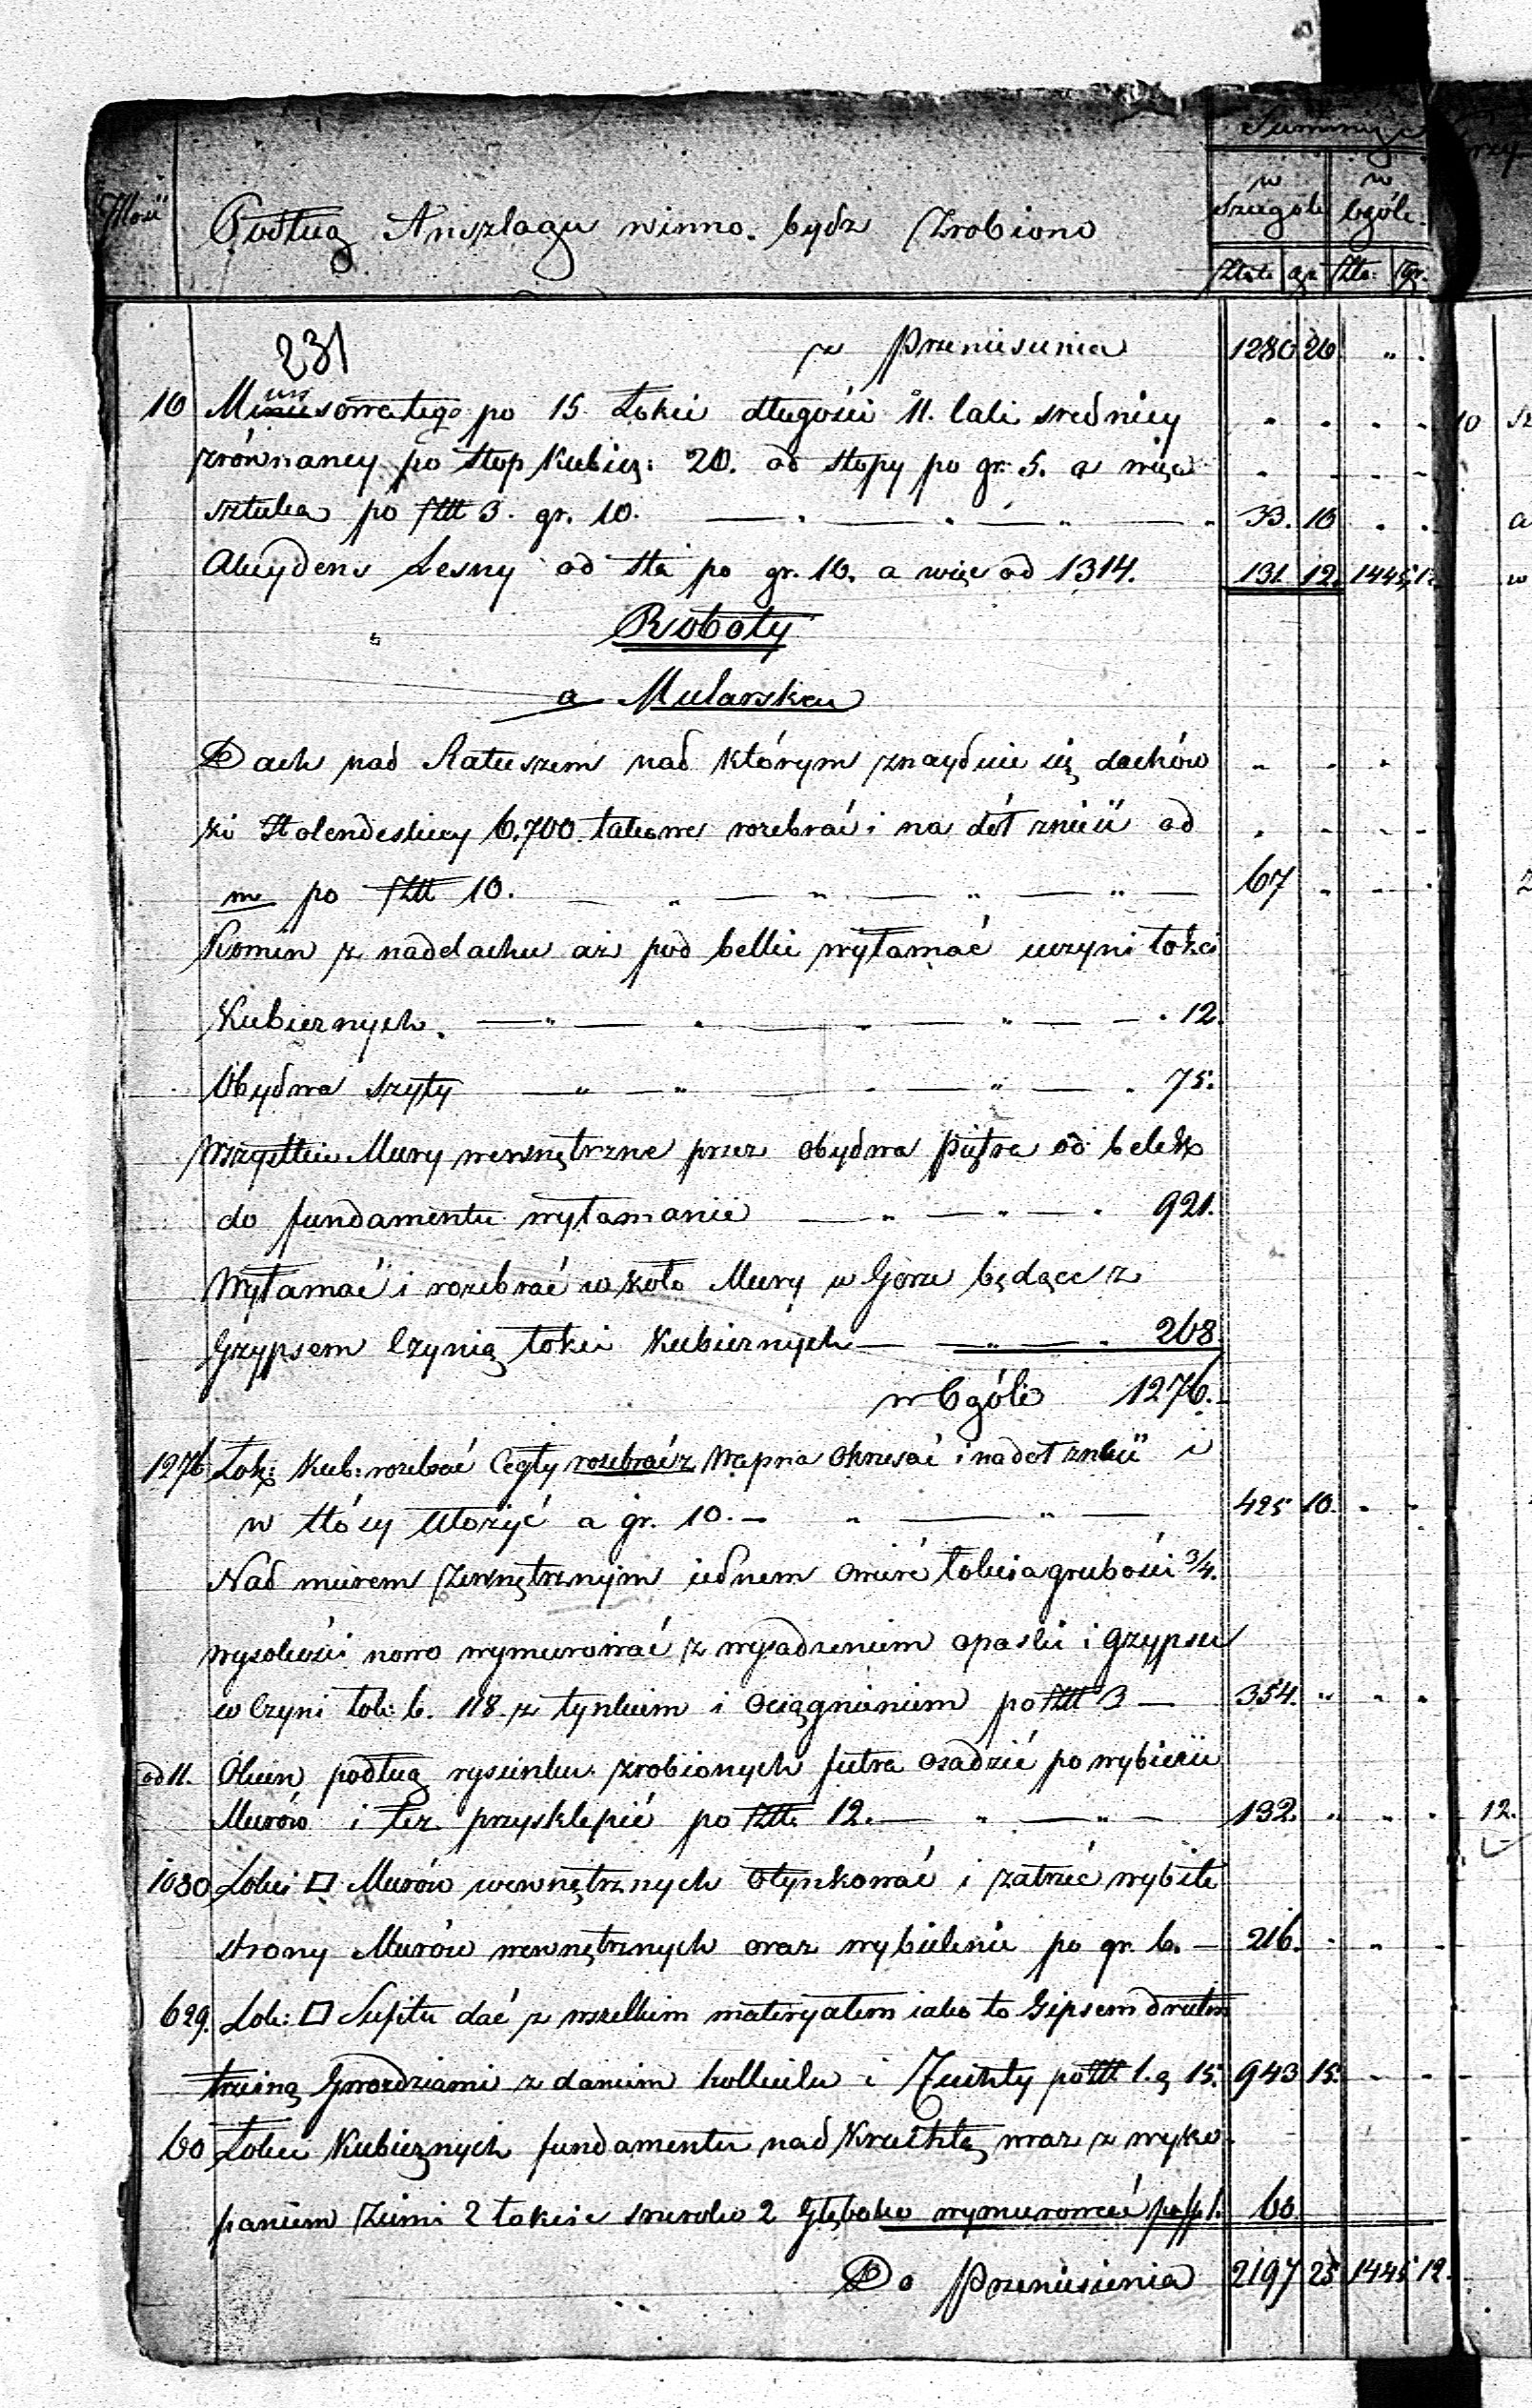 Summy
Ilość
Podług Anszlagu winno bydz Zrobiono
w Szczególe
w Ogóle
Złote gr. Złło: gr:
231
z Przeniesienia 1280 26 " .
10 Murowatego po 15 Łokci długości 11. cali srednicy
zrównaney po stop Kubicz: 20. od stopy po gr. 5. a więc
sztuka po Złtt 3. gr. 10. 33. 10
Akcydens Lesny od tła po gr. 10. a więc od 1314. 131. 12. 1445 12
Roboty
a Mularska
Dach nad Ratuszem nad którym znayduie się dachów
ki Holenderskiey 6,700 takowe rozebrać i na dół znieść od
m po Złtt 10. 67
Komin z nad dachu aż pod belki wyłamać uczyni łokci
Kubicznych. 12.
Obydwa szyty 75.
Wszystkie Mury wewnętrzne przez obydwa piętra od belek
do fundamentu wyłamanie 921.
Wyłamać i rozebrać w koło Mury w Gorze będące z
Gzypsem Czynią łokci Kubicznych 268.
w Ogóle 1276.
1276 Łok: Kub: rozebrać Cegły rozebrać z Wapna Okrzesać i na doł znieść i
w stósy Ułożyć a gr. 10. 425 10.
Nad murem Zewnętrznym iednem ćwierć łokcia grubości 3/4.
wysokości nowo wymurować z wysadzeniem opaski i gzypsu
uczyni łok: b. 118. z tynkiem i Ociągnieniem po Złtt 3 354. "
od 11. Okien podług rysunku zrobionych futra osadzić po wybiciu
Murów i też przysklepić po Złtt. 12. 132.
1080 Łokci □ Murów wewnętrznych Otynkować i zatrzeć wybite
strony Murów wewnętrznych oraz wybielenie po gr. 6. 216.
629. Łok: □ Sufitu dać z wszelkim materyałem iako to Gipsem drutem
trzciną Gwozdziami z daniem holkielu i Zuchty po Złtt 1. g 15. 943 15.
60 Łokci Kubicznych fundamentu nad Kruchtą wraz z wyko
paniem Ziemi 2 łokcie szeroko 2 Głęboko wymurować 60
Do Przeniesienia 2197 25 1445 12.